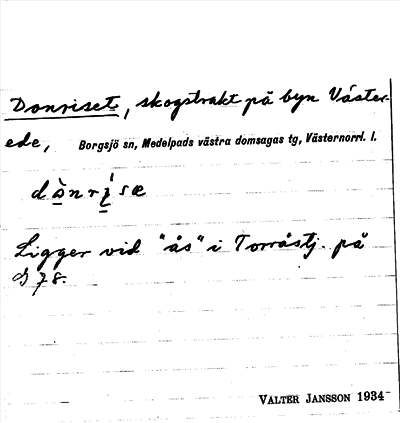 Donriset, skogstrakt på byn Väster-
ede, Borgsjö sn, Medelpads västra domsagas tg, Västernorrl. l.
dònrı̀sæ
Ligger vid "ås" i Torråstj. på
J 78.
VALTER JANSSON 1934